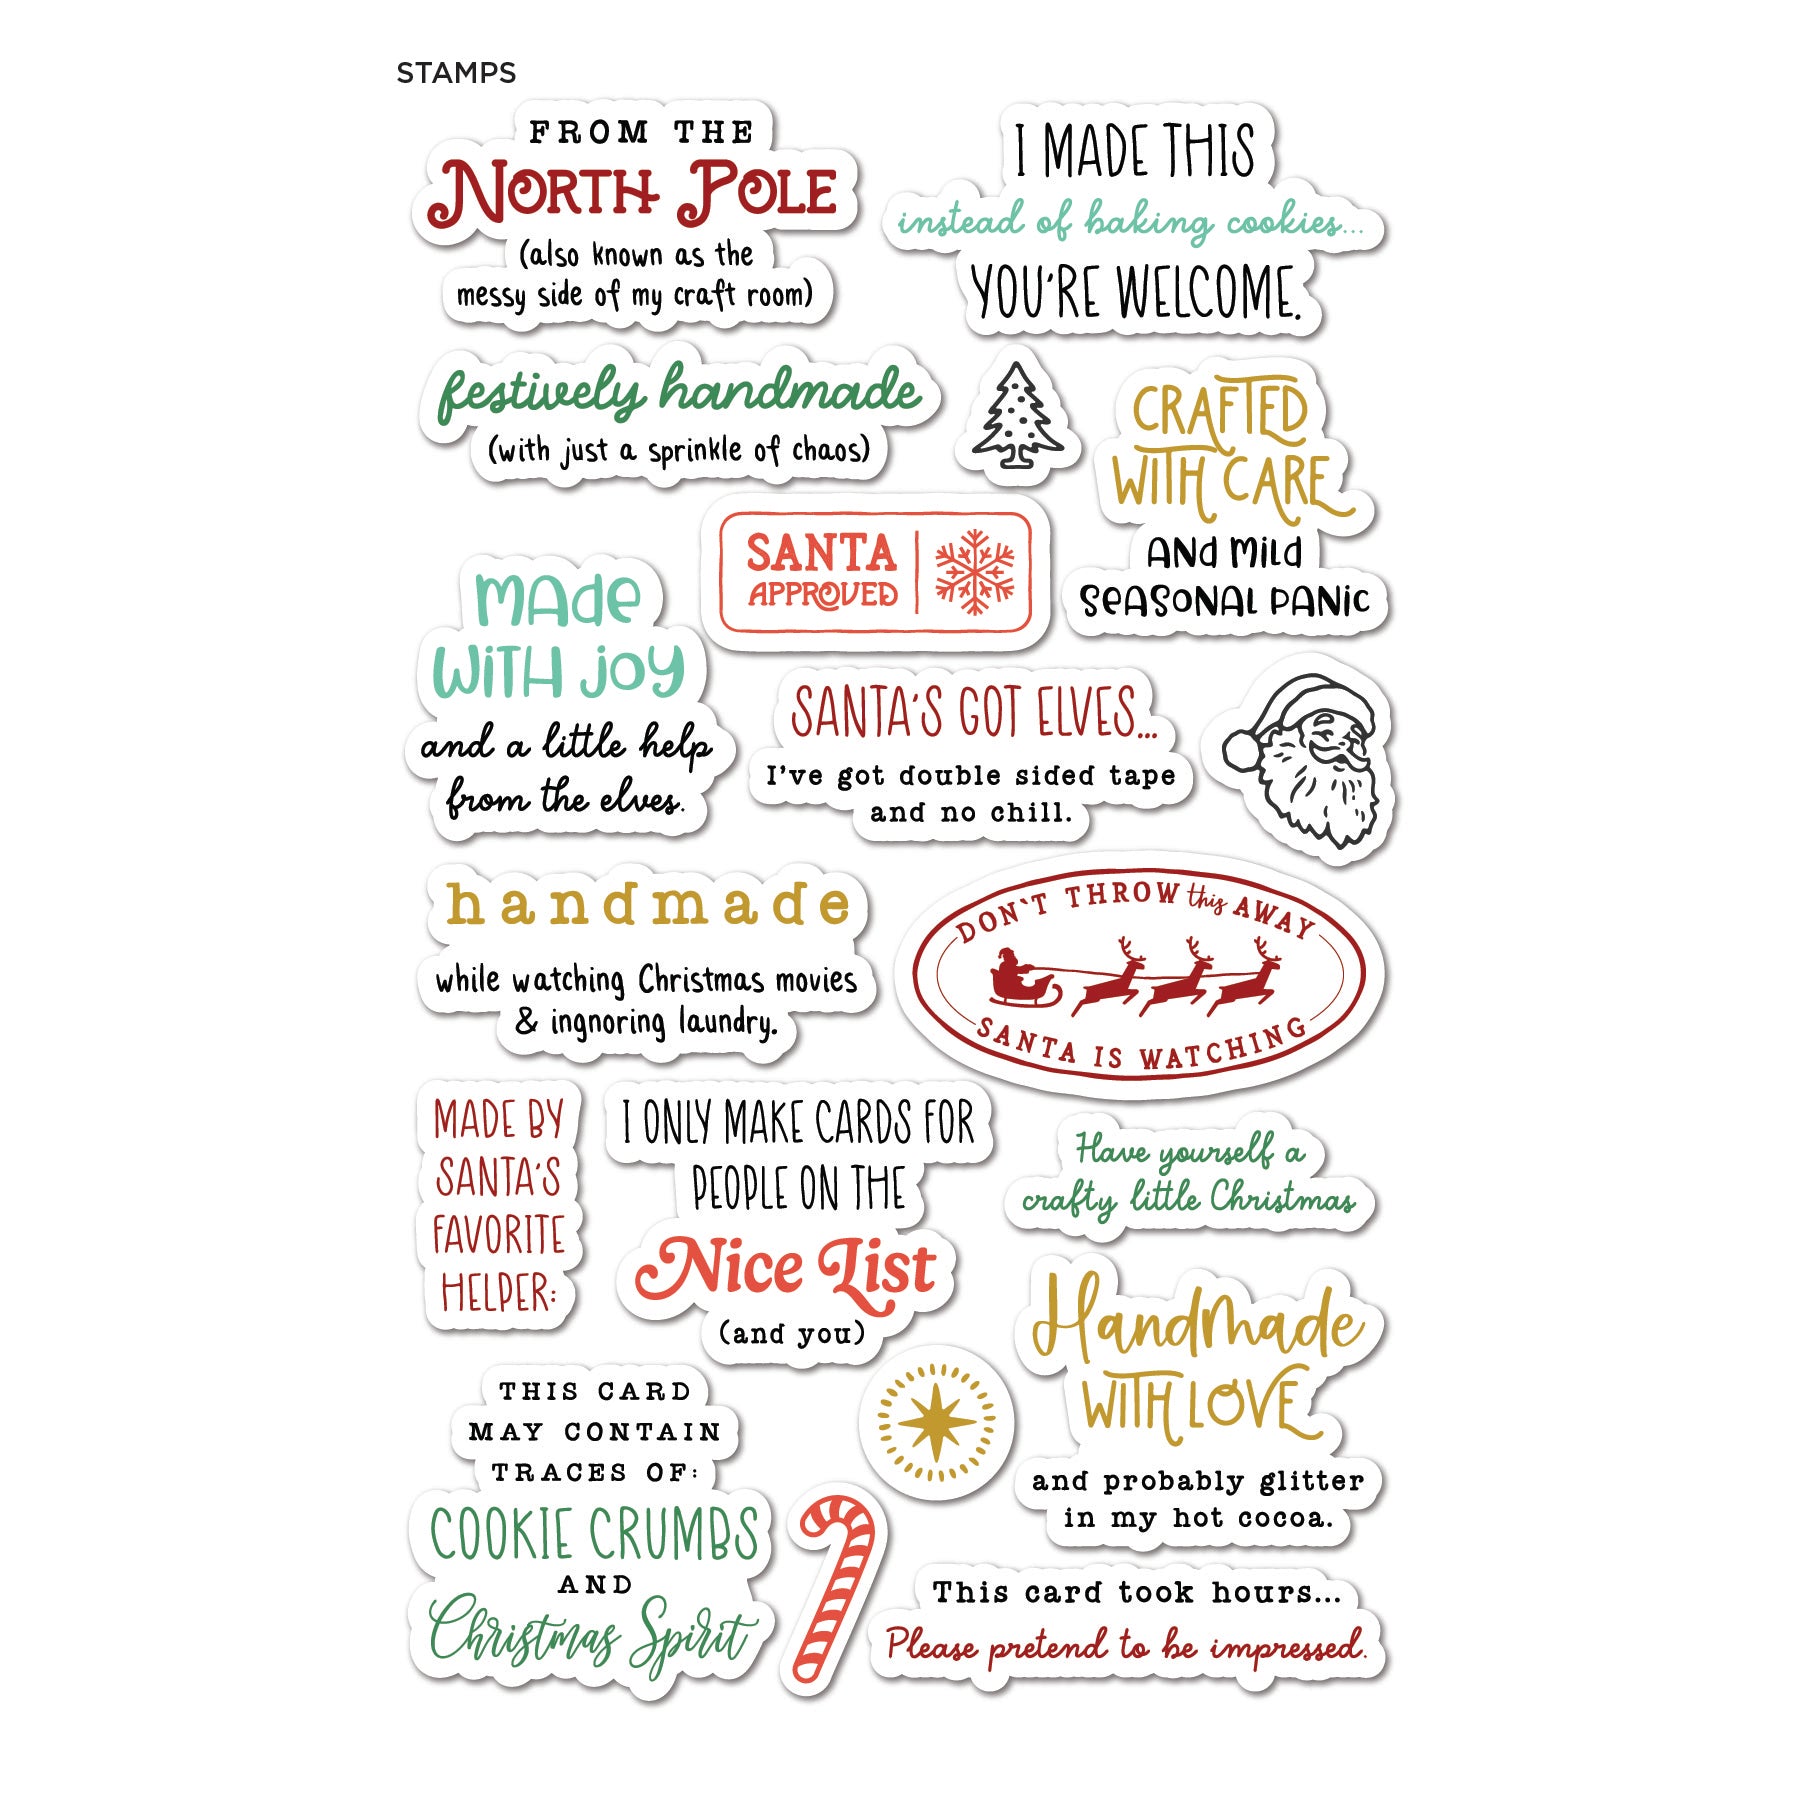 STAMPS
FROM THE
NORTH POLE
(also known as the
messy side of my craft room)
I MADE THIS
instead of baking cookies...
YOU'RE WELCOME.
festively handmade
(with just a sprinkle of chaos)
CRAFTED
WITH CARE
AND MILD
SEASONAL PANIC
SANTA
APPROVED
MADE
WITH JOY
and a little help
from the elves.
SANTA'S GOT ELVES...
I've got double sided tape
and no chill.
handmade
while watching Christmas movies
& ingnoring laundry.
DON'T THROW this AWAY
SANTA IS WATCHING
MADE BY
SANTA'S
FAVORITE
HELPER:
I ONLY MAKE CARDS FOR
PEOPLE ON THE
Nice List
(and you)
Have yourself a
crafty little Christmas
Handmade
WITH LOVE
and probably glitter
in my hot cocoa.
THIS CARD
MAY CONTAIN
TRACES OF:
COOKIE CRUMBS
AND
Christmas Spirit
This card took hours...
Please pretend to be impressed.